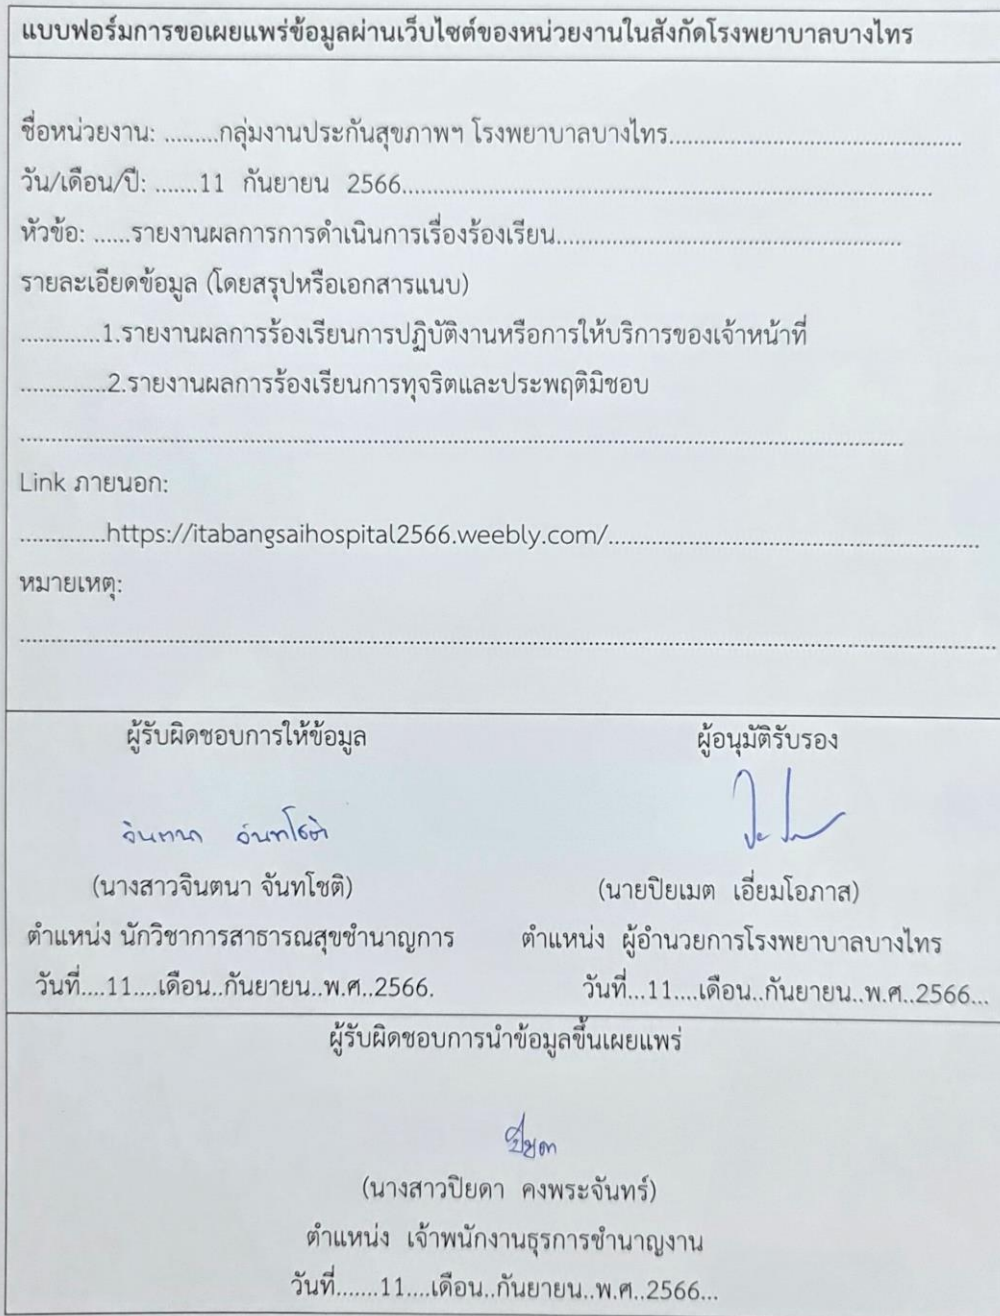 แบบฟอร์มการขอเผยแพร่ข้อมูลผ่านเว็บไซต์ของหน่วยงานในสังกัดโรงพยาบาลบางไทร
ชื่อหน่วยงาน: .........กลุ่มงานประกันสุขภาพฯ โรงพยาบาลบางไทร................................................
วัน/เดือน/ปี: .......11 กันยายน 2566.......................................................................................
หัวข้อ: ......รายงานผลการการดำเนินการเรื่องร้องเรียน.........................................................
รายละเอียดข้อมูล (โดยสรุปหรือเอกสารแนบ)
.............1.รายงานผลการร้องเรียนการปฏิบัติงานหรือการให้บริการของเจ้าหน้าที่
..............2.รายงานผลการร้องเรียนการทุจริตและประพฤติมิชอบ
................................................................................................................................................
Link ภายนอก:
..............https://itabangsaihospital2566.weebly.com/.............................................................
หมายเหตุ:
................................................................................................................................................................
ผู้รับผิดชอบการให้ข้อมูล ผู้อนุมัติรับรอง
จินตนา จันทโชติ
(นางสาวจินตนา จันทโชติ) (นายปิยเมต เอี่ยมโอภาส)
ตำแหน่ง นักวิชาการสาธารณสุขชำนาญการ ตำแหน่ง ผู้อำนวยการโรงพยาบาลบางไทร
วันที่....11....เดือน..กันยายน..พ.ศ..2566. วันที่...11....เดือน..กันยายน..พ.ศ..2566...
ผู้รับผิดชอบการนำข้อมูลขึ้นเผยแพร่
ปิยดา
(นางสาวปิยดา คงพระจันทร์)
ตำแหน่ง เจ้าพนักงานธุรการชำนาญงาน
วันที่.......11....เดือน..กันยายน..พ.ศ..2566...